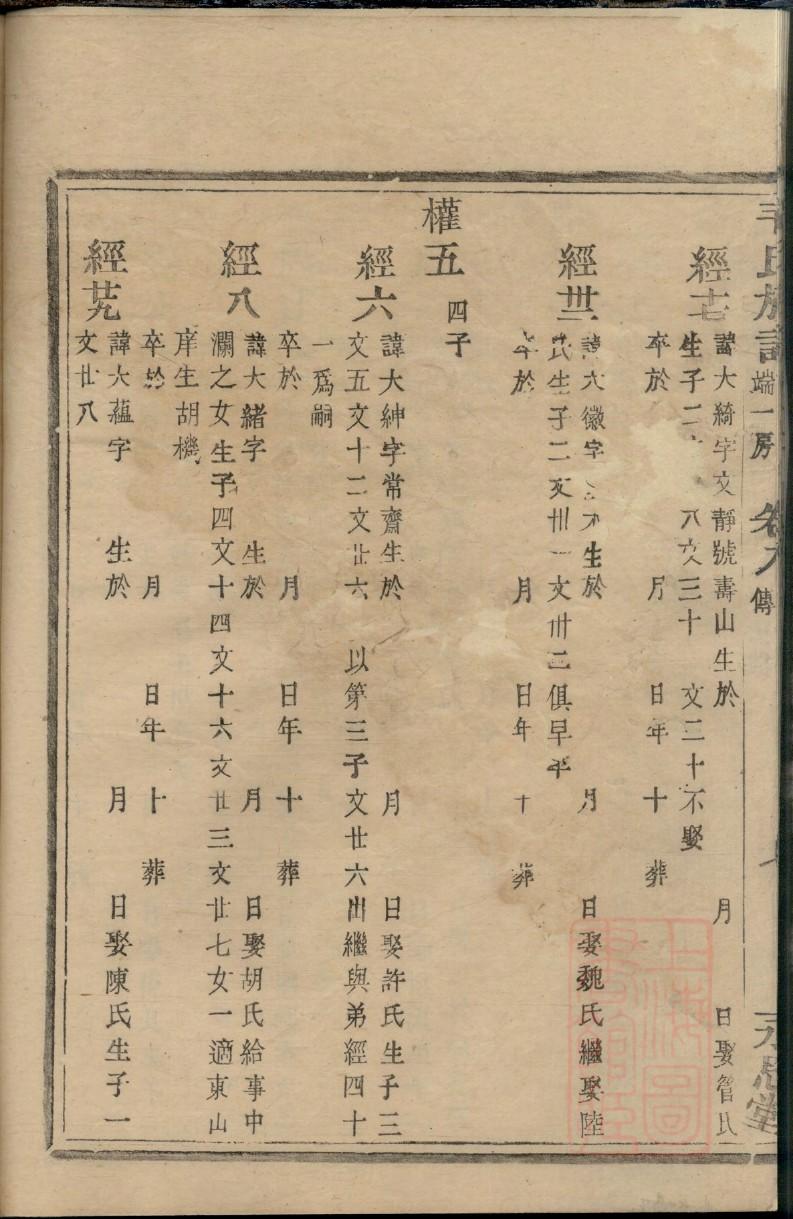 氏族 端一房 傳 永思堂
經 諱大綺字文靜號壽山生於 月 日娶管氏
生子二 八文三十 文二十不娶
卒於 月 日年 十 葬
經 大徽字 生於 月 日娶魏氏繼娶陸
氏生子二文卅一文卅二俱早卒
卒於 月 日年 十 葬
權五 四子
經六 諱大紳字常齋生於 月 日娶許氏生子三
文五文十二文廿六 以第三子文廿六出繼與弟經四十
一爲嗣
卒於 月 日年 十 葬
經八 諱大緒字 生於 月 日娶胡氏給事中
瀾之女生子四文十四文十六文廿三文廿七女一適東山
庠生胡機
卒於 月 日年 十 葬
經 諱大蘊字 生於 月 日娶陳氏生子一
文廿八